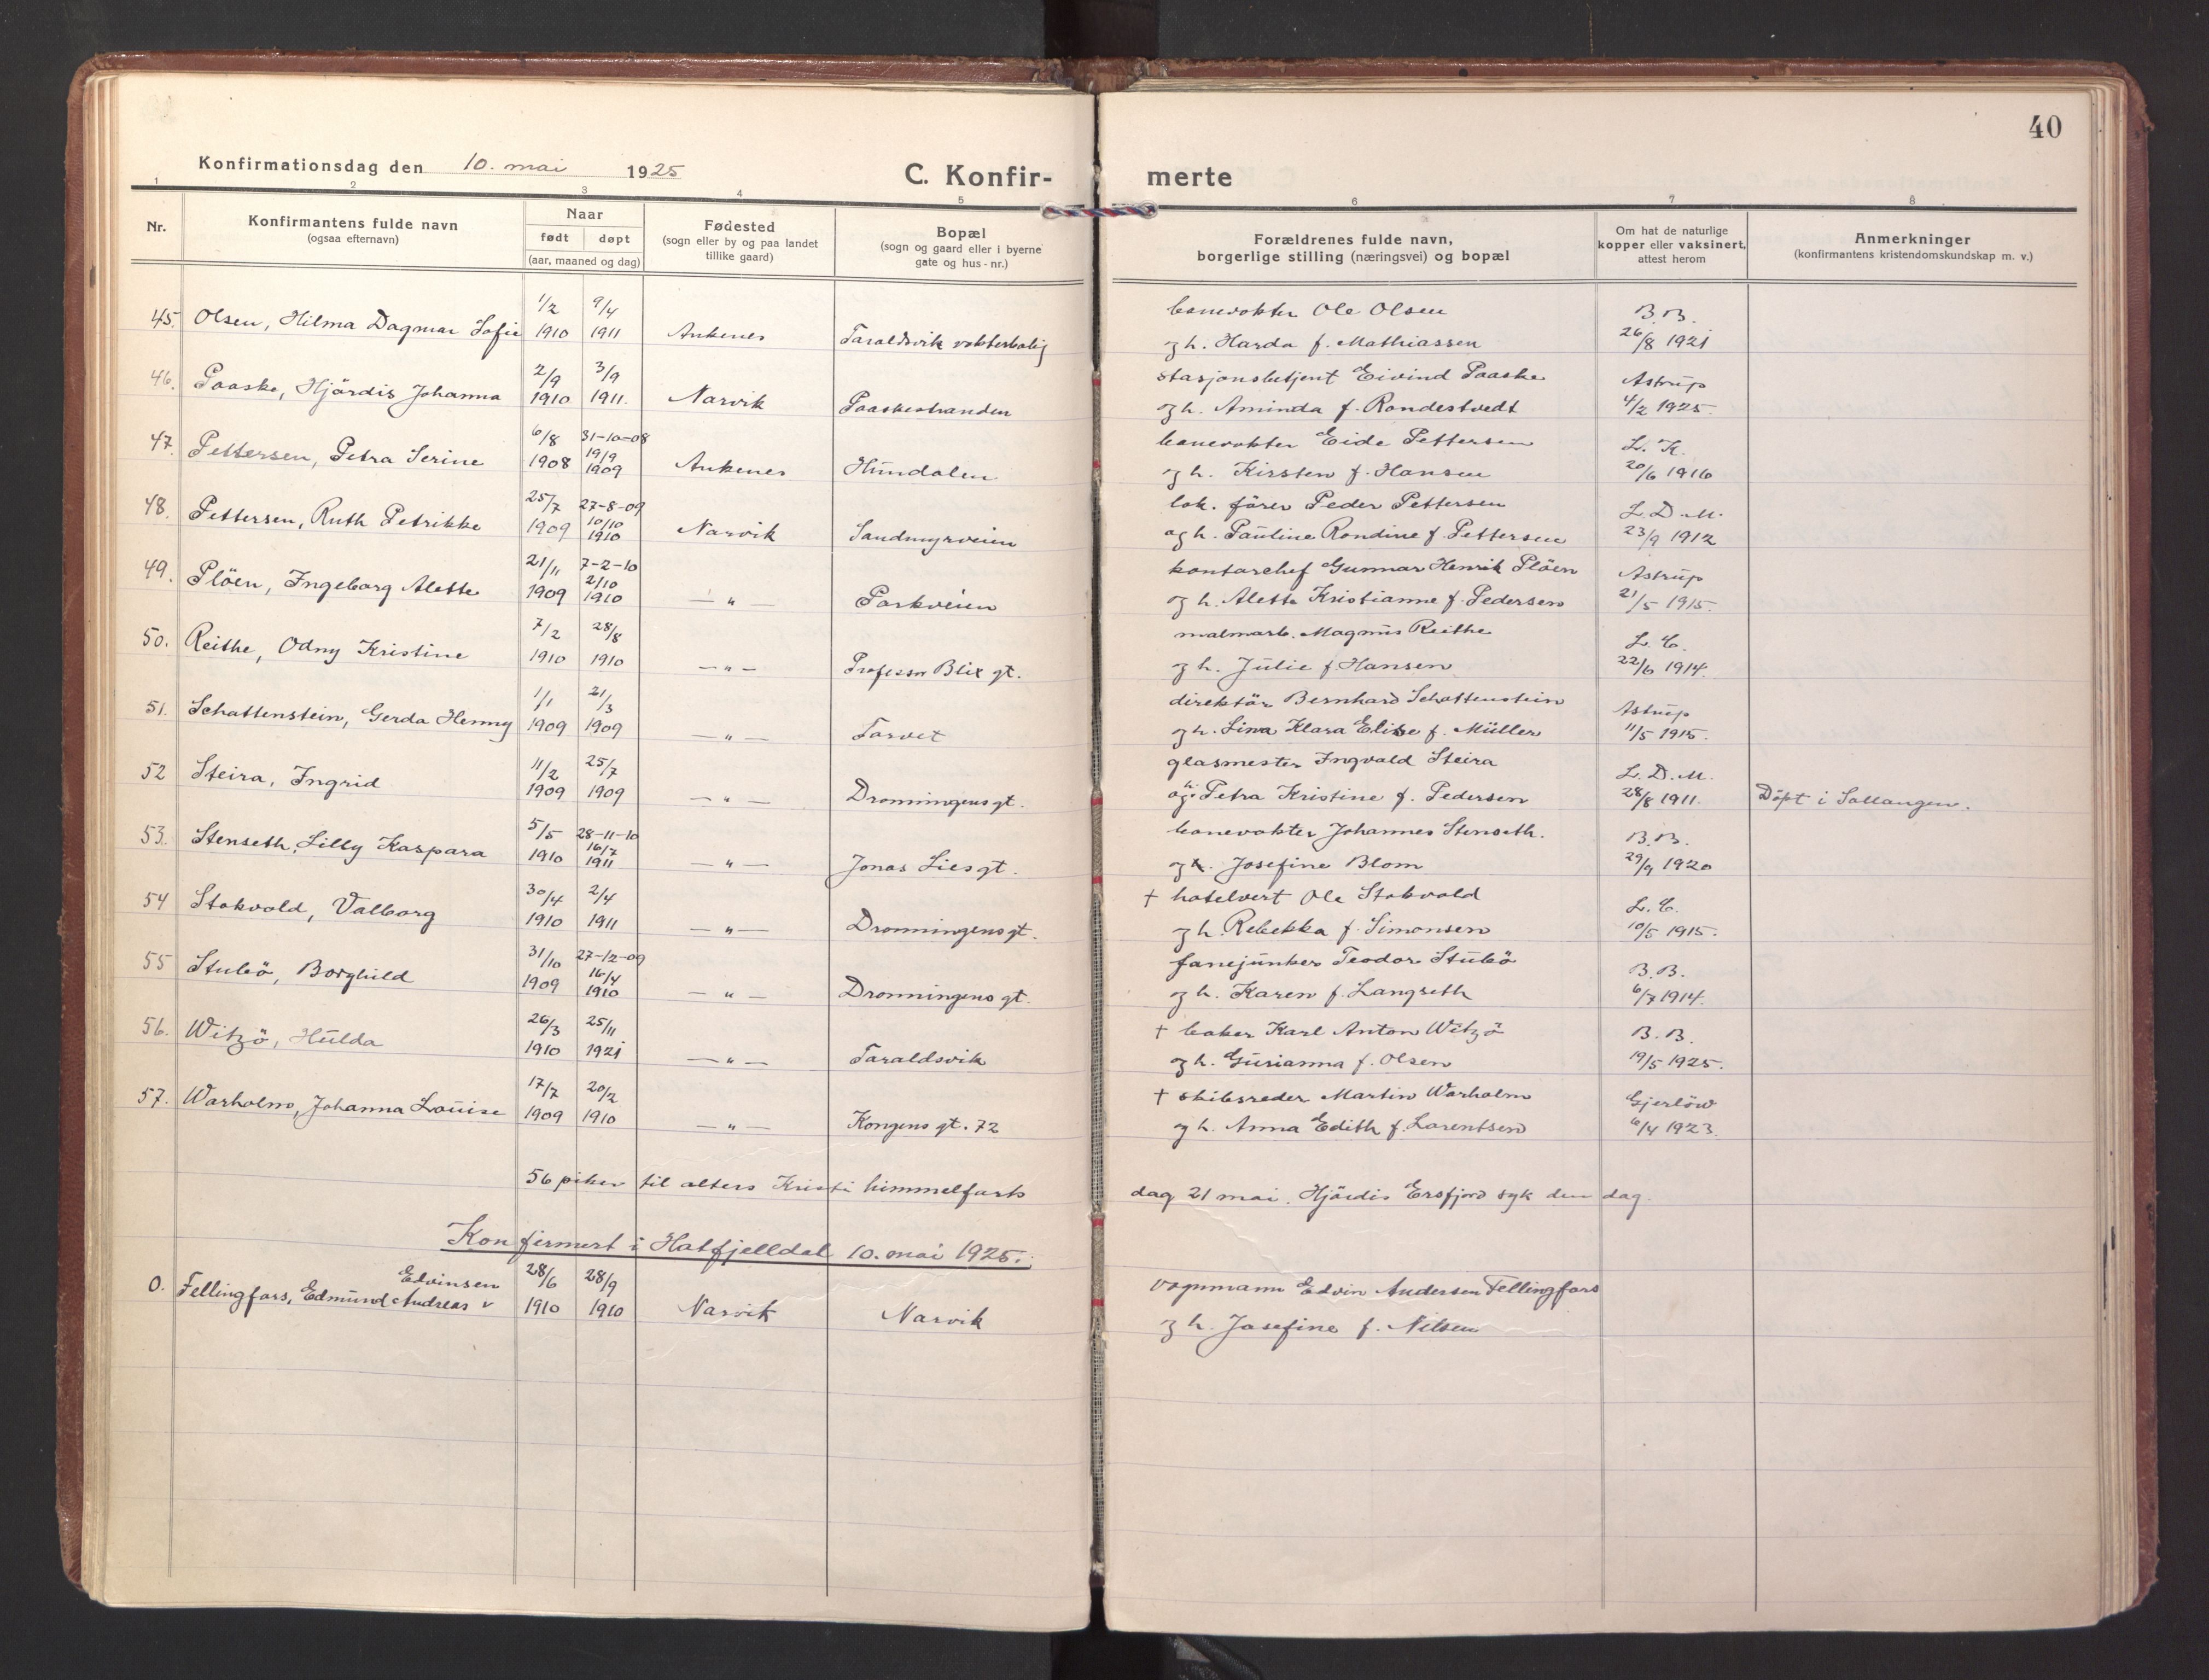 40
Konfirmationsdag den 10. mai 1925
C. Konfir- merte
1 2 3 4 5 6 7 8
Nr.
Konfirmantens fulde navn
(ogsaa efternavn)
Naar
født døpt
(aar, maaned og dag)
Fødested
(sogn eller by og paa landet
tillike gaard)
Bopæl
(sogn og gaard eller i byerne
gate og hus-nr.)
Forældrenes fulde navn,
borgerlige stilling (næringsvei) og bopæl
Om hat de naturlige
kopper eller vaksinert,
attest herom
Anmerkninger
(konfirmantens kristendomskundskap m. v.)
1/2 9/4 banevokter Ole Olsen B.B.
45. Olsen, Hilma Dagmar Sofie 1910 1911 Ankenes Taraldsvik vokterbolig og h. Harda f. Mathiassen 26/8 1921
2/9 3/9 stasjonsbetjent Eivind Paaske Astrup
46. Paaske, Hjördis Johanna 1910 1911. Narvik Paaskestranden og h. Aminda f. Rondestvedt 4/2 1925.
6/8 31-10-08 banevokter Eide Pettersen L. K.
47. Pettersen, Petra Serine 1908 19/9 1909 Ankenes Hundalen og h. Kirsten f. Hansen 20/6 1916
25/7 27-8-09 lok. fører Peder Pettersen L.D.M.
48. Pettersen, Ruth Petrikke 1909 10/10 1910 Narvik Sandmyrveien og h. Pauline Rondine f. Pettersen 23/9 1912
21/11 7-2-10 kontorchef Gunnar Henrik Plöen Astrup
49. Plöen, Ingeborg Alette 1909 2/10 1910 — " — Parkveien og h. Alette Kristianne f. Pedersen 21/5 1915.
7/2 28/8 malmarb. Magnus Reithe L. C.
50. Reithe, Odny Kristine 1910 1910 — " — Professor Blix gt. og h. Julie f. Hansen 22/6 1914.
1/1 21/3 direktör Bernhard Schattenstein Astrup
51. Schattenstein, Gerda Henny 1909 1909 — " — Torvet og h. Lina Klara Elise f. Müller 11/5 1915.
11/2 25/7 glasmester Ingvald Steira L.D.M.
52 Steira, Ingrid 1909 1909 — " — Dronningensgt. og h. Petra Kristine f. Pedersen 28/8 1911. Döpt i Sallangen.
5/5 28-11-10 banevokter Johannes Stenseth. B.B.
53. Stenseth, Lilly Kaspara 1910 16/7 1911 — " — Jonas Liesgt. og h. Josefine Blom 29/9 1920
30/4 2/4 † hotelvert Ole Stokvold L.C.
54 Stokvold, Valborg 1910 1911 — " — Dronningensgt. og h. Rebekka f. Simonsen 10/5 1915.
31/10 27-12-09 fanejunker Teodor Stubö B.B.
55 Stubö, Borghild 1909 16/4 1910 — " — Dronningensgt. og h. Karen f. Langseth 6/7 1914.
26/3 25/11 † baker Karl Anton Witzö B.B.
56. Witzö, Hulda 1910 1921 — " — Taraldsvik og h. Gurianna f. Olsen 19/5 1925.
17/7 20/2 † skibsreder Martin Warholm Gjerlöw
57. Warholm, Johanna Louise 1909 1910 — " — Kongens gt. 72 og h. Anna Edith f. Lorentsen 6/4 1923.
56 piker til alters Kristi himmelfarts dag 21 mai. Hjördis Ersfjord syk den dag.
Konfirmert i Hatfjelldal 10. mai 1925.
Edvinsen 28/6 28/9 vognmann Edvin Andersen Fellingfors
0. Fellingfors, Edmund Andreas v 1910 1910 Narvik Narvik og h. Josefine f. Nilsen